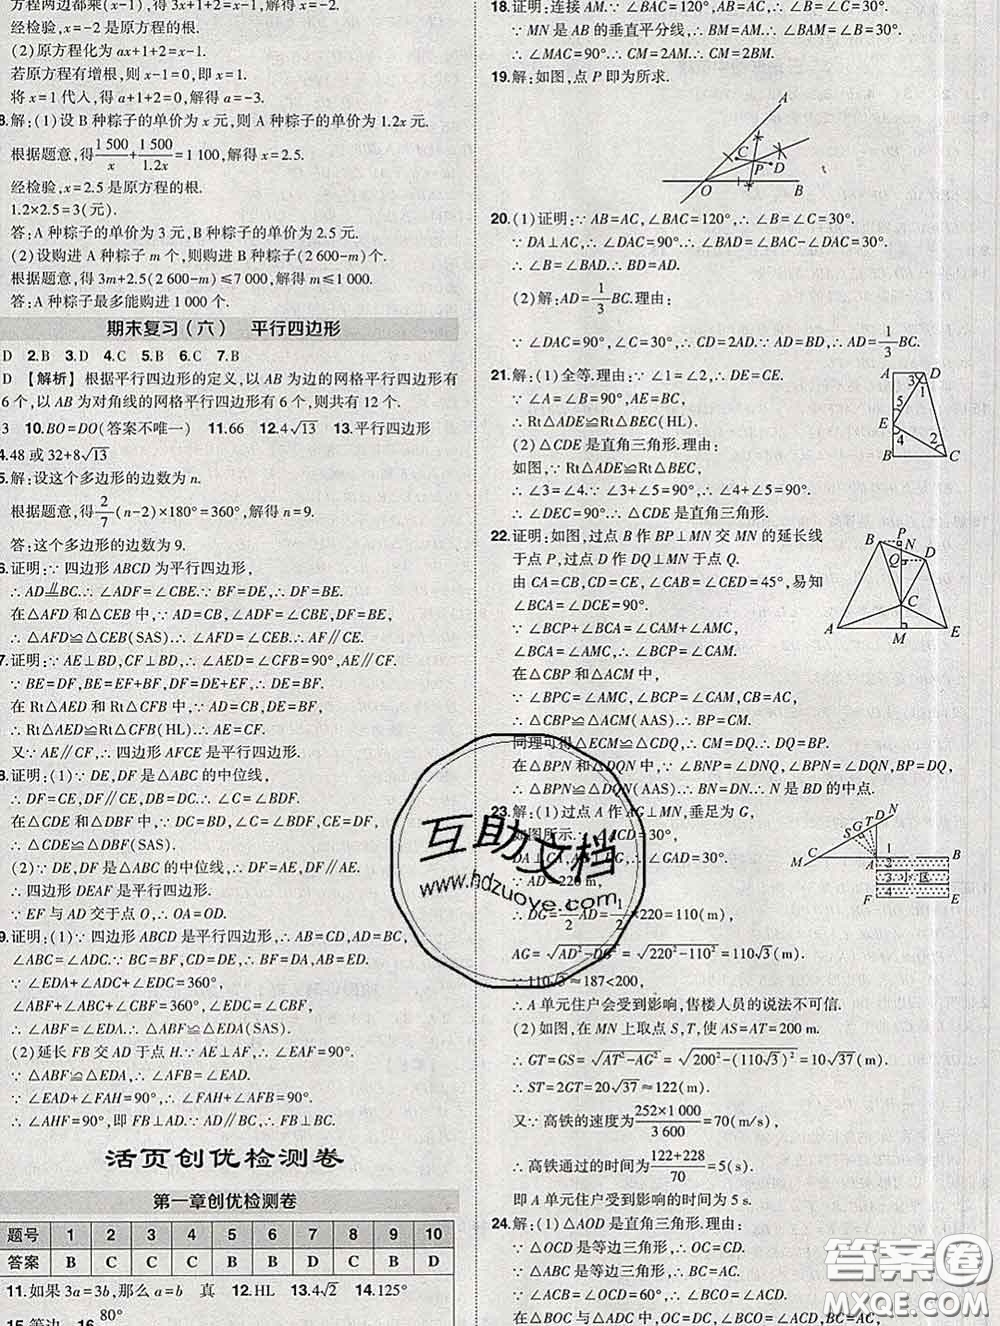 方程两边都乘(x-1),得3x=a(x-1)+2x,
经检验,x=-2是原方程的根.
(2)原方程化为ax+1+2=x-1.
若原方程有增根,则x-1=0,即x=1.
将x=1代人,得a+1+2=0,解得a=-3.
8.解:(1)设B种粽子的单价为x元,则A种粽子的单价为1.2x元.
根据题意,得1 500/x+1 500/1.2x=1 100,解得x=2.5.
经检验,x=2.5是原方程的根.
1.2×2.5=3(元).
答:A种粽子的单价为3元,B种粽子的单价为2.5元.
(2)设购进A种粽子m个,则购进B种粽子(2 600-m)个.
根据题意,得3m+2.5(2 600-m)≤7 000,解得m≤1 000.
答:A种粽子最多能购进1 000个.
期末复习(六) 平行四边形
D 2.B 3.D 4.C 5.C 6.C 7.B
D 【解析】根据平行四边形的定义,以AB为边的网格平行四边形有
6个,以AB为对角线的网格平行四边形有6个,则共有12个.
3 10.BO=DO(答案不唯一) 11.66 12.4√13 13.平行四边形
4.48或32+8√13
5.解:设这个多边形的边数为n.
根据题意,得2/7(n-2)×180°=360°,解得n=9.
答:这个多边形的边数为9.
6.证明:∵四边形ABCD为平行四边形,
∴AD∥BC.∴∠ADF=∠CBE.∵BF=DE,∴BE=DF.
在△AFD和△CEB中,∵AD=CB,∠ADF=∠CBE,DF=BE,
∴△AFD≌△CEB(SAS).∴AF=CE.
7.证明:∵AE⊥BD,CF⊥BD,∴∠AED=∠CFB=90°,AE∥CF.
∵BE=DF,BE+EF=DF+EF,∴DE=BF.
在Rt△AED和Rt△CFB中,∵AD=CB,DE=BF,
∴Rt△AED≌Rt△CFB(HL).∴AE=CF.
又∵AE∥CF,∴四边形AFCE是平行四边形.
8.证明:(1)∵DE,DF是△ABC的中位线,
∴DF=CE,DF∥CE.∴∠C=∠BDF.
在△CDE和△DBF中,∵DC=BD,∠C=∠BDF,CE=DF,
∴△CDE≌△DBF(SAS).
(2)∵DE,DF是△ABC的中位线,∴DF=AE,DF∥AE.
∴四边形DEAF是平行四边形.
∵EF与AD交于点O,∴OA=OD.
9.证明:(1)∵四边形ABCD是平行四边形,∴AB=CD,AD=BC,
∠ABC=∠ADC.∵BC=BF,CD=DE,∴BF=AD,AB=DE.
∵∠EDA+∠ADC+∠EDC=360°,
∠ABF+∠ABC+∠CBF=360°,∠EDC=∠CBF,
∴∠ABF=∠EDA.∴△ABF≌△EDA(SAS).
(2)延长FB交AD于点H.∵AE⊥AF,∴∠EAF=90°.
∵△ABF≌△EDA,∴∠AFB=∠EAD.
∵∠EAD+∠FAH=90°,∴∠FAH+∠AFB=90°.
∴∠AHF=90°,即FB⊥AD.∵AD∥BC,∴FB⊥BC.
活页创优检测卷
第一章创优检测卷
题号 1 2 3 4 5 6 7 8 9 10
答案 B C C C B B D C B D
11.如果3a=3b,那么a=b 真 12.HL 13.4√2 14.125°
15.等边 16.80°
18.证明:连接AM.∵∠BAC=120°,AB=AC,∴∠B=∠C=30°.
∵MN是AB的垂直平分线,∴BM=AM.∴∠BAM=∠B=30°.
∴∠MAC=90°.∴CM=2AM.∴CM=2BM.
19.解:如图,点P即为所求.
A
C
P
D
O
B
20.(1)证明:∵AB=AC,∠BAC=120°,∴∠B=∠C=30°.
∵DA⊥AC,∴∠DAC=90°.∴∠BAD=∠BAC-∠DAC=30°.
∴∠B=∠BAD.∴BD=AD.
(2)解:AD=1/3BC.理由:
∵∠DAC=90°,∠C=30°,∴CD=2AD.又∵AD=BD,∴AD=1/3BC.
21.解:(1)全等.理由:∵∠1=∠2,∴DE=CE.
∵∠A=∠B=90°,AE=BC,
∴Rt△ADE≌Rt△BEC(HL).
(2)△CDE是直角三角形.理由:
如图,∵Rt△ADE≌Rt△BEC,
∴∠3=∠4.∵∠3+∠5=90°,∴∠4+∠5=90°.
∴∠DEC=90°.∴△CDE是直角三角形.
A 3 D
1
5
E
4 2
B C
22.证明:如图,过点B作BP⊥MN交MN的延长线
于点P,过点D作DQ⊥MN于点Q.
由CA=CB,CD=CE,∠ABC=∠CED=45°,易知
∠BCA=∠DCE=90°.
∵∠BCP+∠BCA=∠CAM+∠AMC,
∠BCA=∠AMC,∴∠BCP=∠CAM.
在△CBP和△ACM中,
∵∠BPC=∠AMC,∠BCP=∠CAM,BC=CA,
∴△CBP≌△ACM(AAS).∴BP=CM.
同理可得△ECM≌△CDQ,∴CM=DQ.∴DQ=BP.
在△BPN和△DQN中,∵∠BNP=∠DNQ,∠BPN=∠DQN,BP=DQ,
∴△BPN≌△DQN(AAS).∴BN=DN.∴N是BD的中点.
B P
N
Q D
C
A M E
23.解:(1)过点A作AG⊥MN,垂足为G,
如图所示.∵∠ACD=30°,
DA⊥CA,AB∥CD,∴∠GAD=30°.
∵AD=220 m,
∴DG=1/2AD=1/2×220=110(m),
AG=√AD²-DG²=√220²-110²=110√3(m).
∵110√3≈187<200,
∴A单元住户会受到影响,售楼人员的说法不可信.
(2)如图,在MN上取点S,T,使AS=AT=200 m,
∴GT=GS=√AT²-AG²=√200²-(110√3)²=10√37(m).
∴ST=2GT=20√37≈122(m).
又∵高铁的速度为252×1 000/3 600=70(m/s),
∴高铁通过的时间为122+228/70=5(s).
即A单元住户受到影响的时间为5 s.
S G T D N
M C
A 1 B
2
3 小区
F 4 E
24.解:(1)△AOD是直角三角形.理由:
∵△OCD是等边三角形,∴OC=CD.
∵△ABC是等边三角形,∴BC=AC.
在△BOC与△ADC中,∵∠BCO=∠ACD,BC=AC,
互助文档
www.hdzuoye.com
答案圈
MXQE.COM